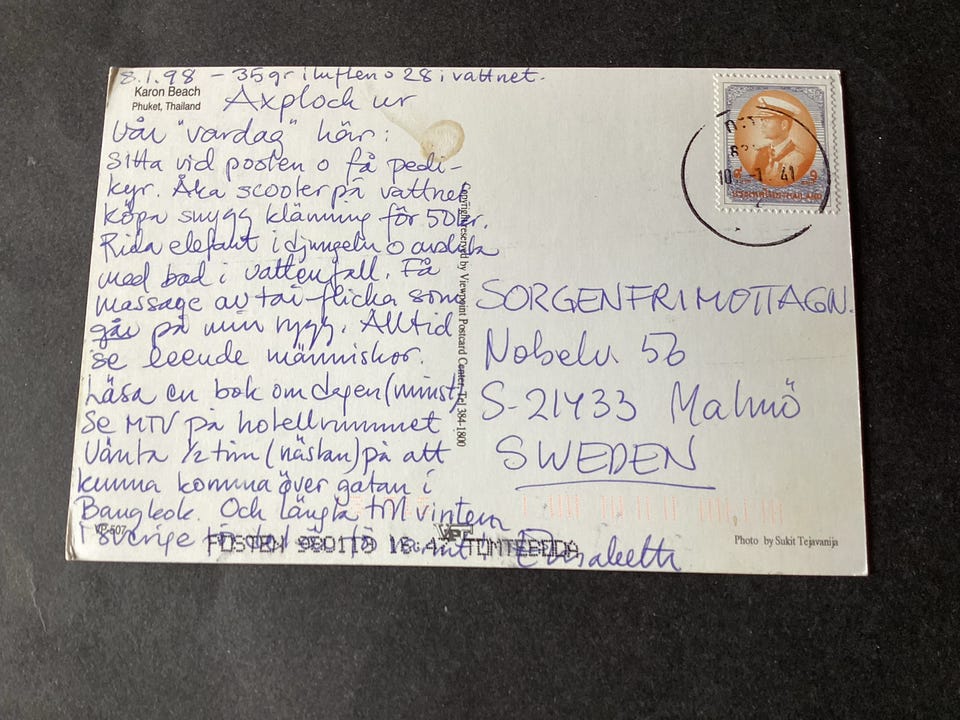 8.1.98 - 35 gr i luften o 28 i vattnet.
Karon Beach
Phuket, Thailand
Axplock ur
vår "vardag" här:
Sitta vid poolen o få pedi-
kyr. Åka scooter på vattnet
köpa snygg klänning för 50 kr.
Rida elefant i djungeln o avsluta
med bad i vattenfall. Få
massage av tai-flicka som
går på min rygg. Alltid
se leende människor.
Läsa en bok om dagen (minst)
Se MTV på hotellrummet
Vänta 1/2 tim (nästan) på att
kunna komma över gatan i
Bangkok. Och längta till vintern
i Sverige
Elisabeth
VP-507
VPT
POSTEN 980115 18:47 TOMTEBODA
Copyright reserved by Viewpoint Postcard Center Tel 384-1800
10 -1. 41
9 9
SORGENFRIMOTTAGN.
Nobelv 56
S-21433 Malmö
SWEDEN
Photo by Sukit Tejavanija